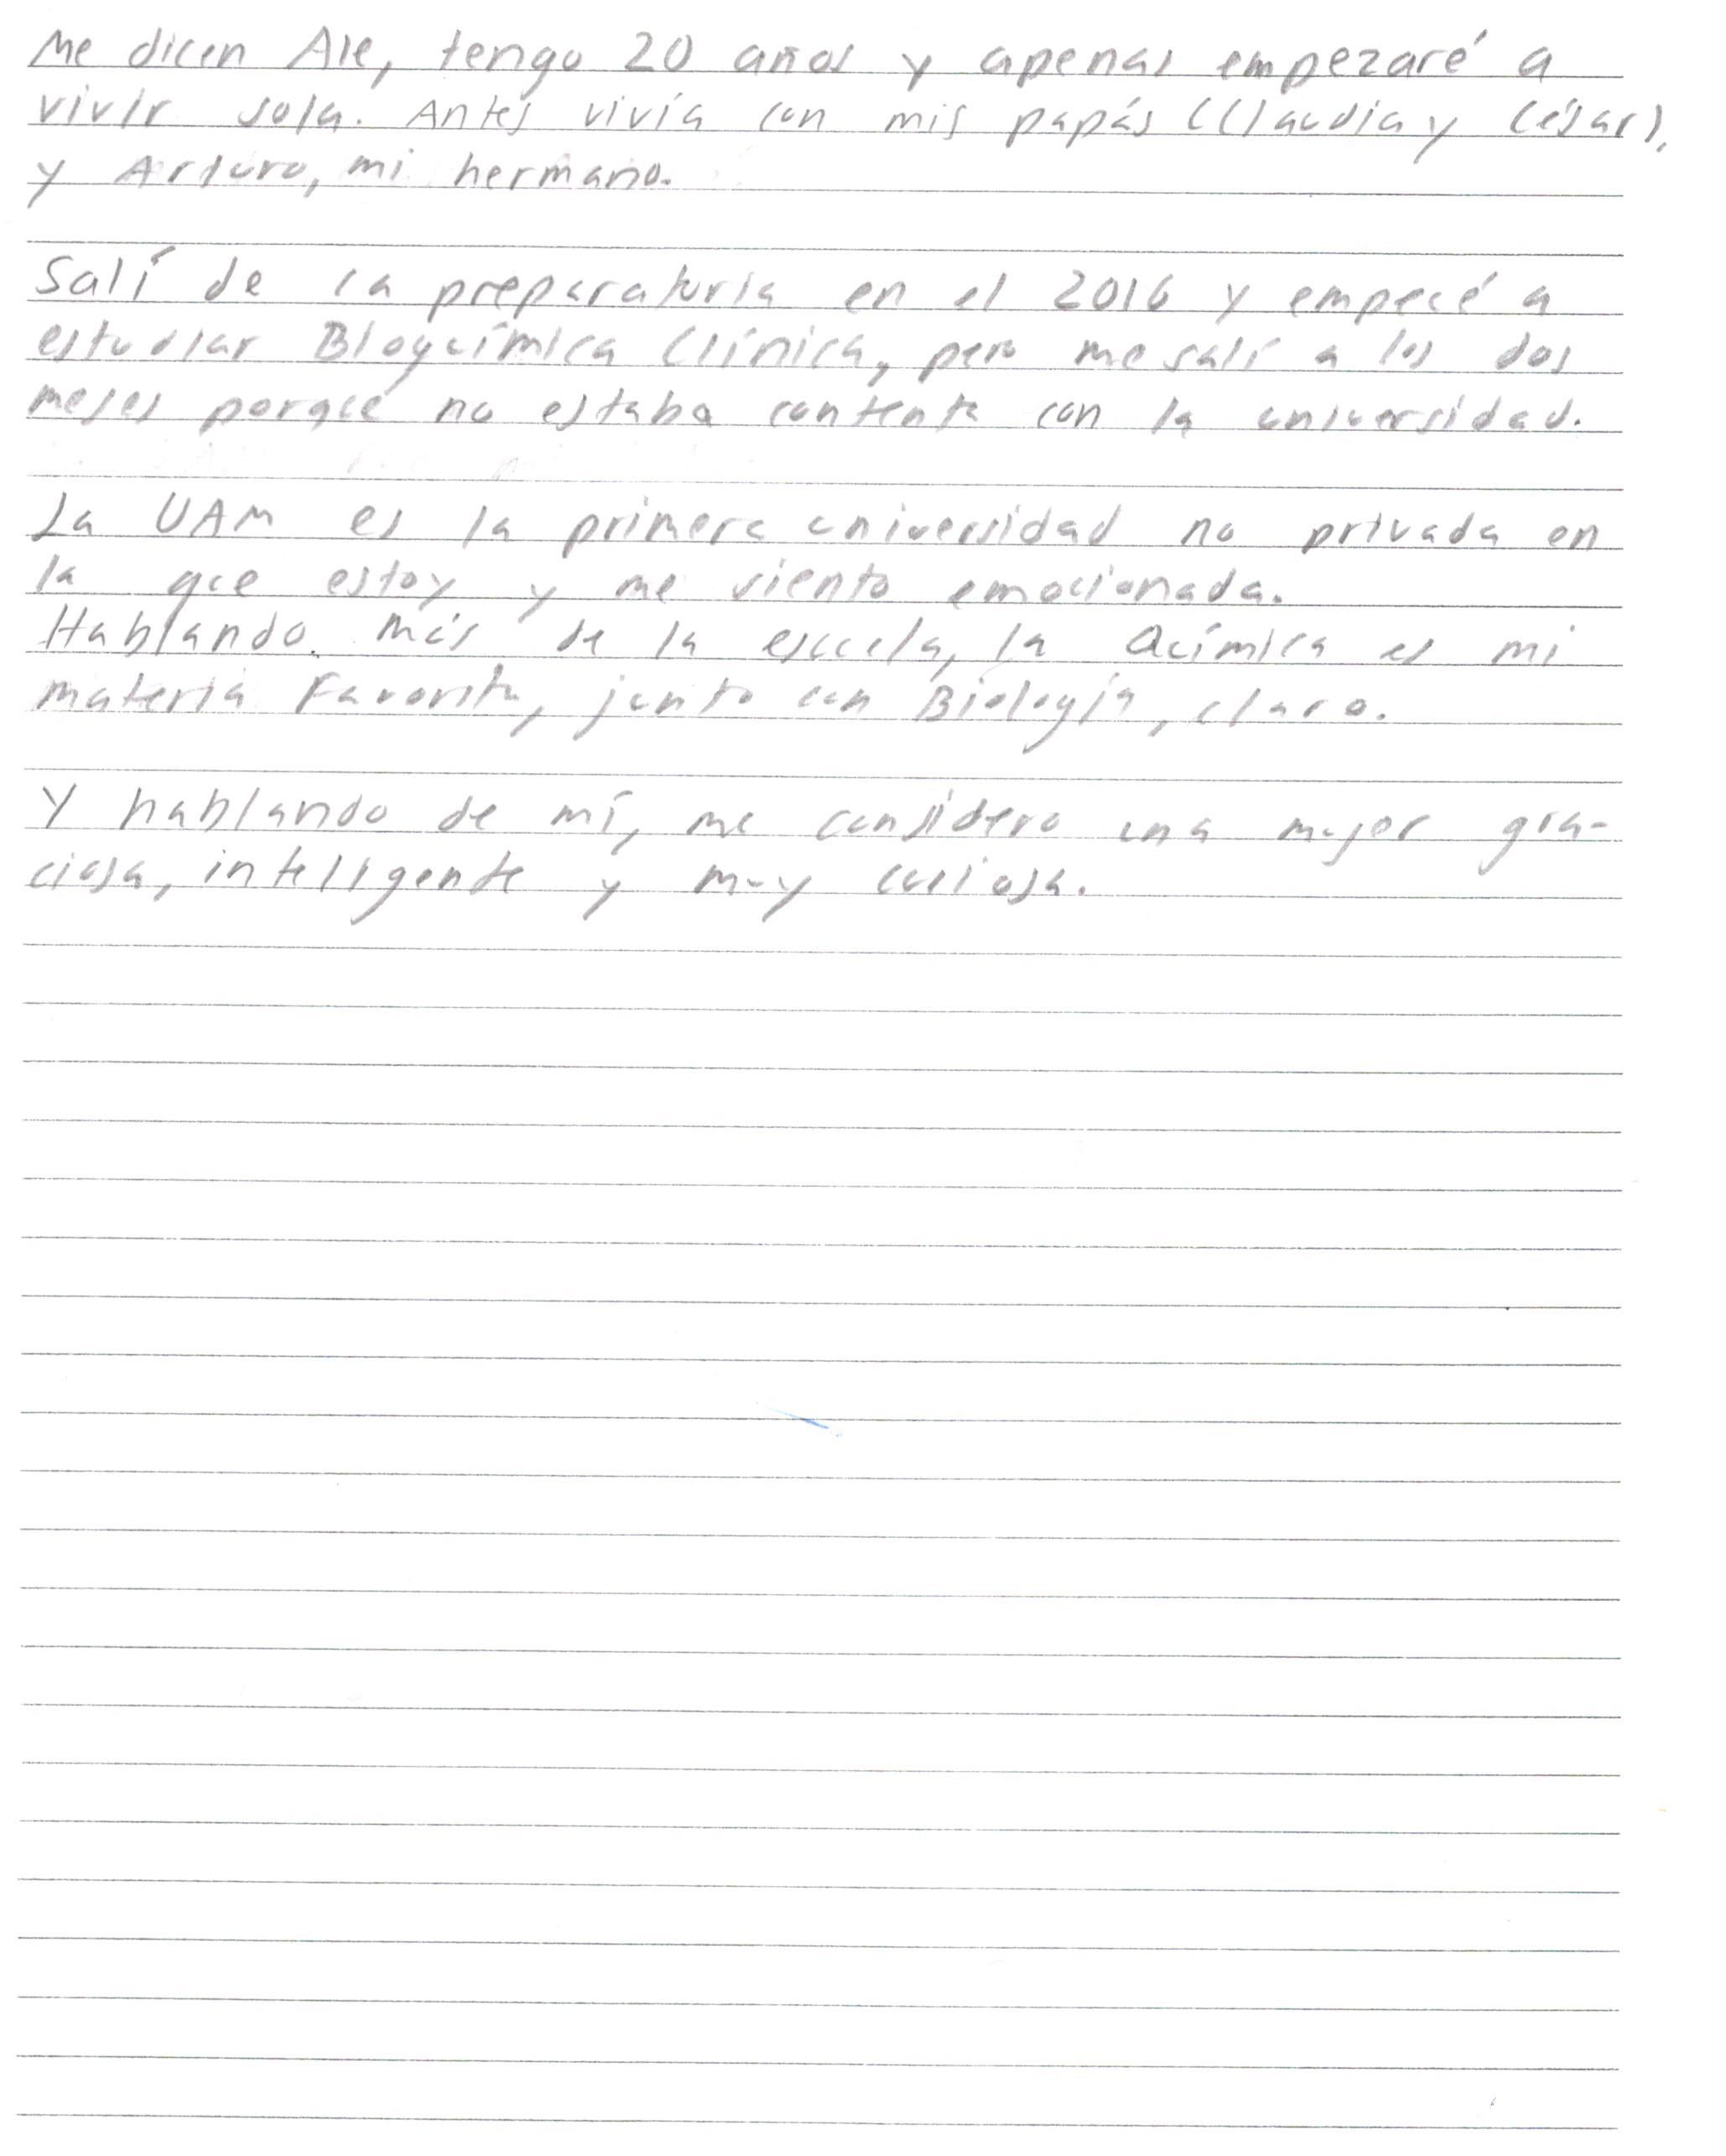 Me dicen Ale, tengo 20 años y apenas empezaré a
vivir sola. Antes vivía con mis papás (Claudia y César),
y Arturo, mi hermano.
Salí de la preparatoria en el 2016 y empecé a
estudiar Bioquímica Clínica, pero me salí a los dos
meses porque no estaba contenta con la universidad.
La UAM es la primera universidad no privada en
la que estoy y me siento emocionada.
Hablando más de la escuela, la Química es mi
materia favorita, junto con Biología, claro.
Y hablando de mí, me considero una mujer gra-
ciosa, inteligente y muy curiosa.